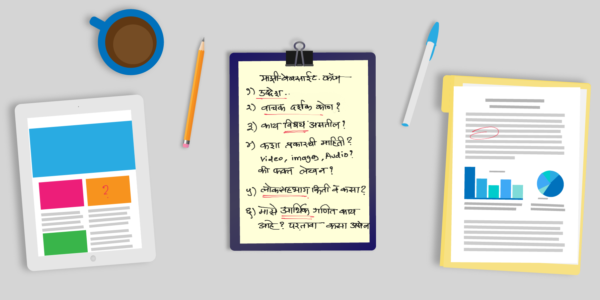 माझी वेबसाईट. कॉम
१) उद्देश..
२) वाचक दर्शक कोण?
३) काय विषय असतील?
४) कशा प्रकारची माहिती?
Video, images, Audio?
की फक्त लेखन?
५) लोकसहभाग किती व कसा?
६) माझे आर्थिक गणित काय
आहे? परतावा कसा असेल
?